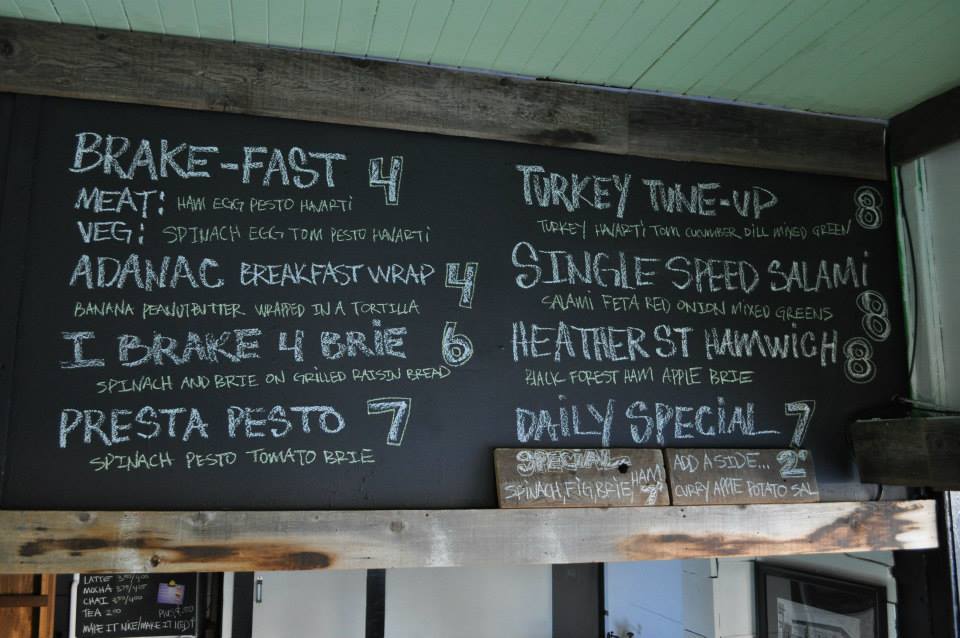 BRAKE-FAST 4
MEAT: HAM EGG PESTO HAVARTI
VEG: SPINACH EGG TOM PESTO HAVARTI
ADANAC BREAKFAST WRAP 4
BANANA PEANUTBUTTER WRAPPED IN A TORTILLA
I BRAKE 4 BRIE 6
SPINACH AND BRIE ON GRILLED RAISIN BREAD
PRESTA PESTO 7
SPINACH PESTO TOMATO BRIE
TURKEY TUNE-UP 8
TURKEY HAVARTI TOM CUCUMBER DILL MIXED GREEN
SINGLE SPEED SALAMI 8
SALAMI FETA RED ONION MIXED GREENS
HEATHER ST HAMWICH 8
BLACK FOREST HAM APPLE BRIE
DAILY SPECIAL 7
SPECIAL
SPINACH, FIG, BRIE, HAM 7
ADD A SIDE... 2
CURRY APPLE POTATO SAL
LATTE
MOCHA
CHAI
TEA